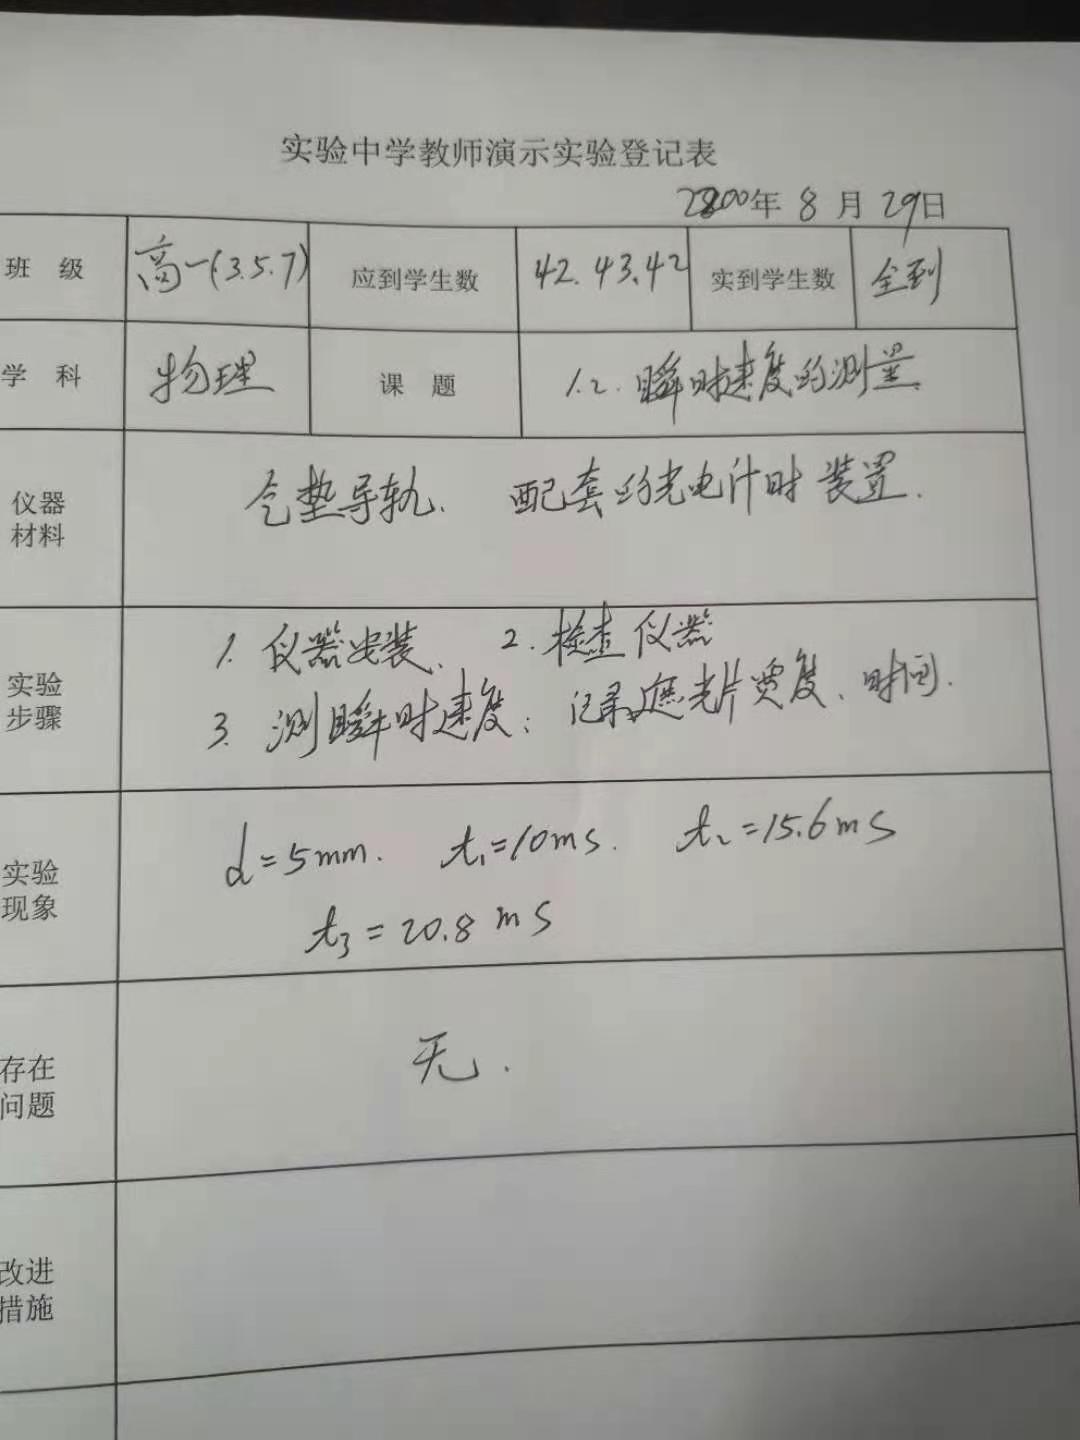 实验中学教师演示实验登记表
2800年 8 月 29日
班 级 高一(3.5.7) 应到学生数 42.43.42 实到学生数 全到
学 科 物理 课 题 1.2. 瞬时速度的测量.
仪器
材料
气垫导轨. 配套的光电计时装置.
实验
步骤
1. 仪器安装、 2. 检查仪器
3. 测瞬时速度; 记录遮光片宽度、时间.
实验
现象
d=5mm. t₁=10ms. t₂=15.6ms
t₃=20.8ms
存在
问题
无.
改进
措施